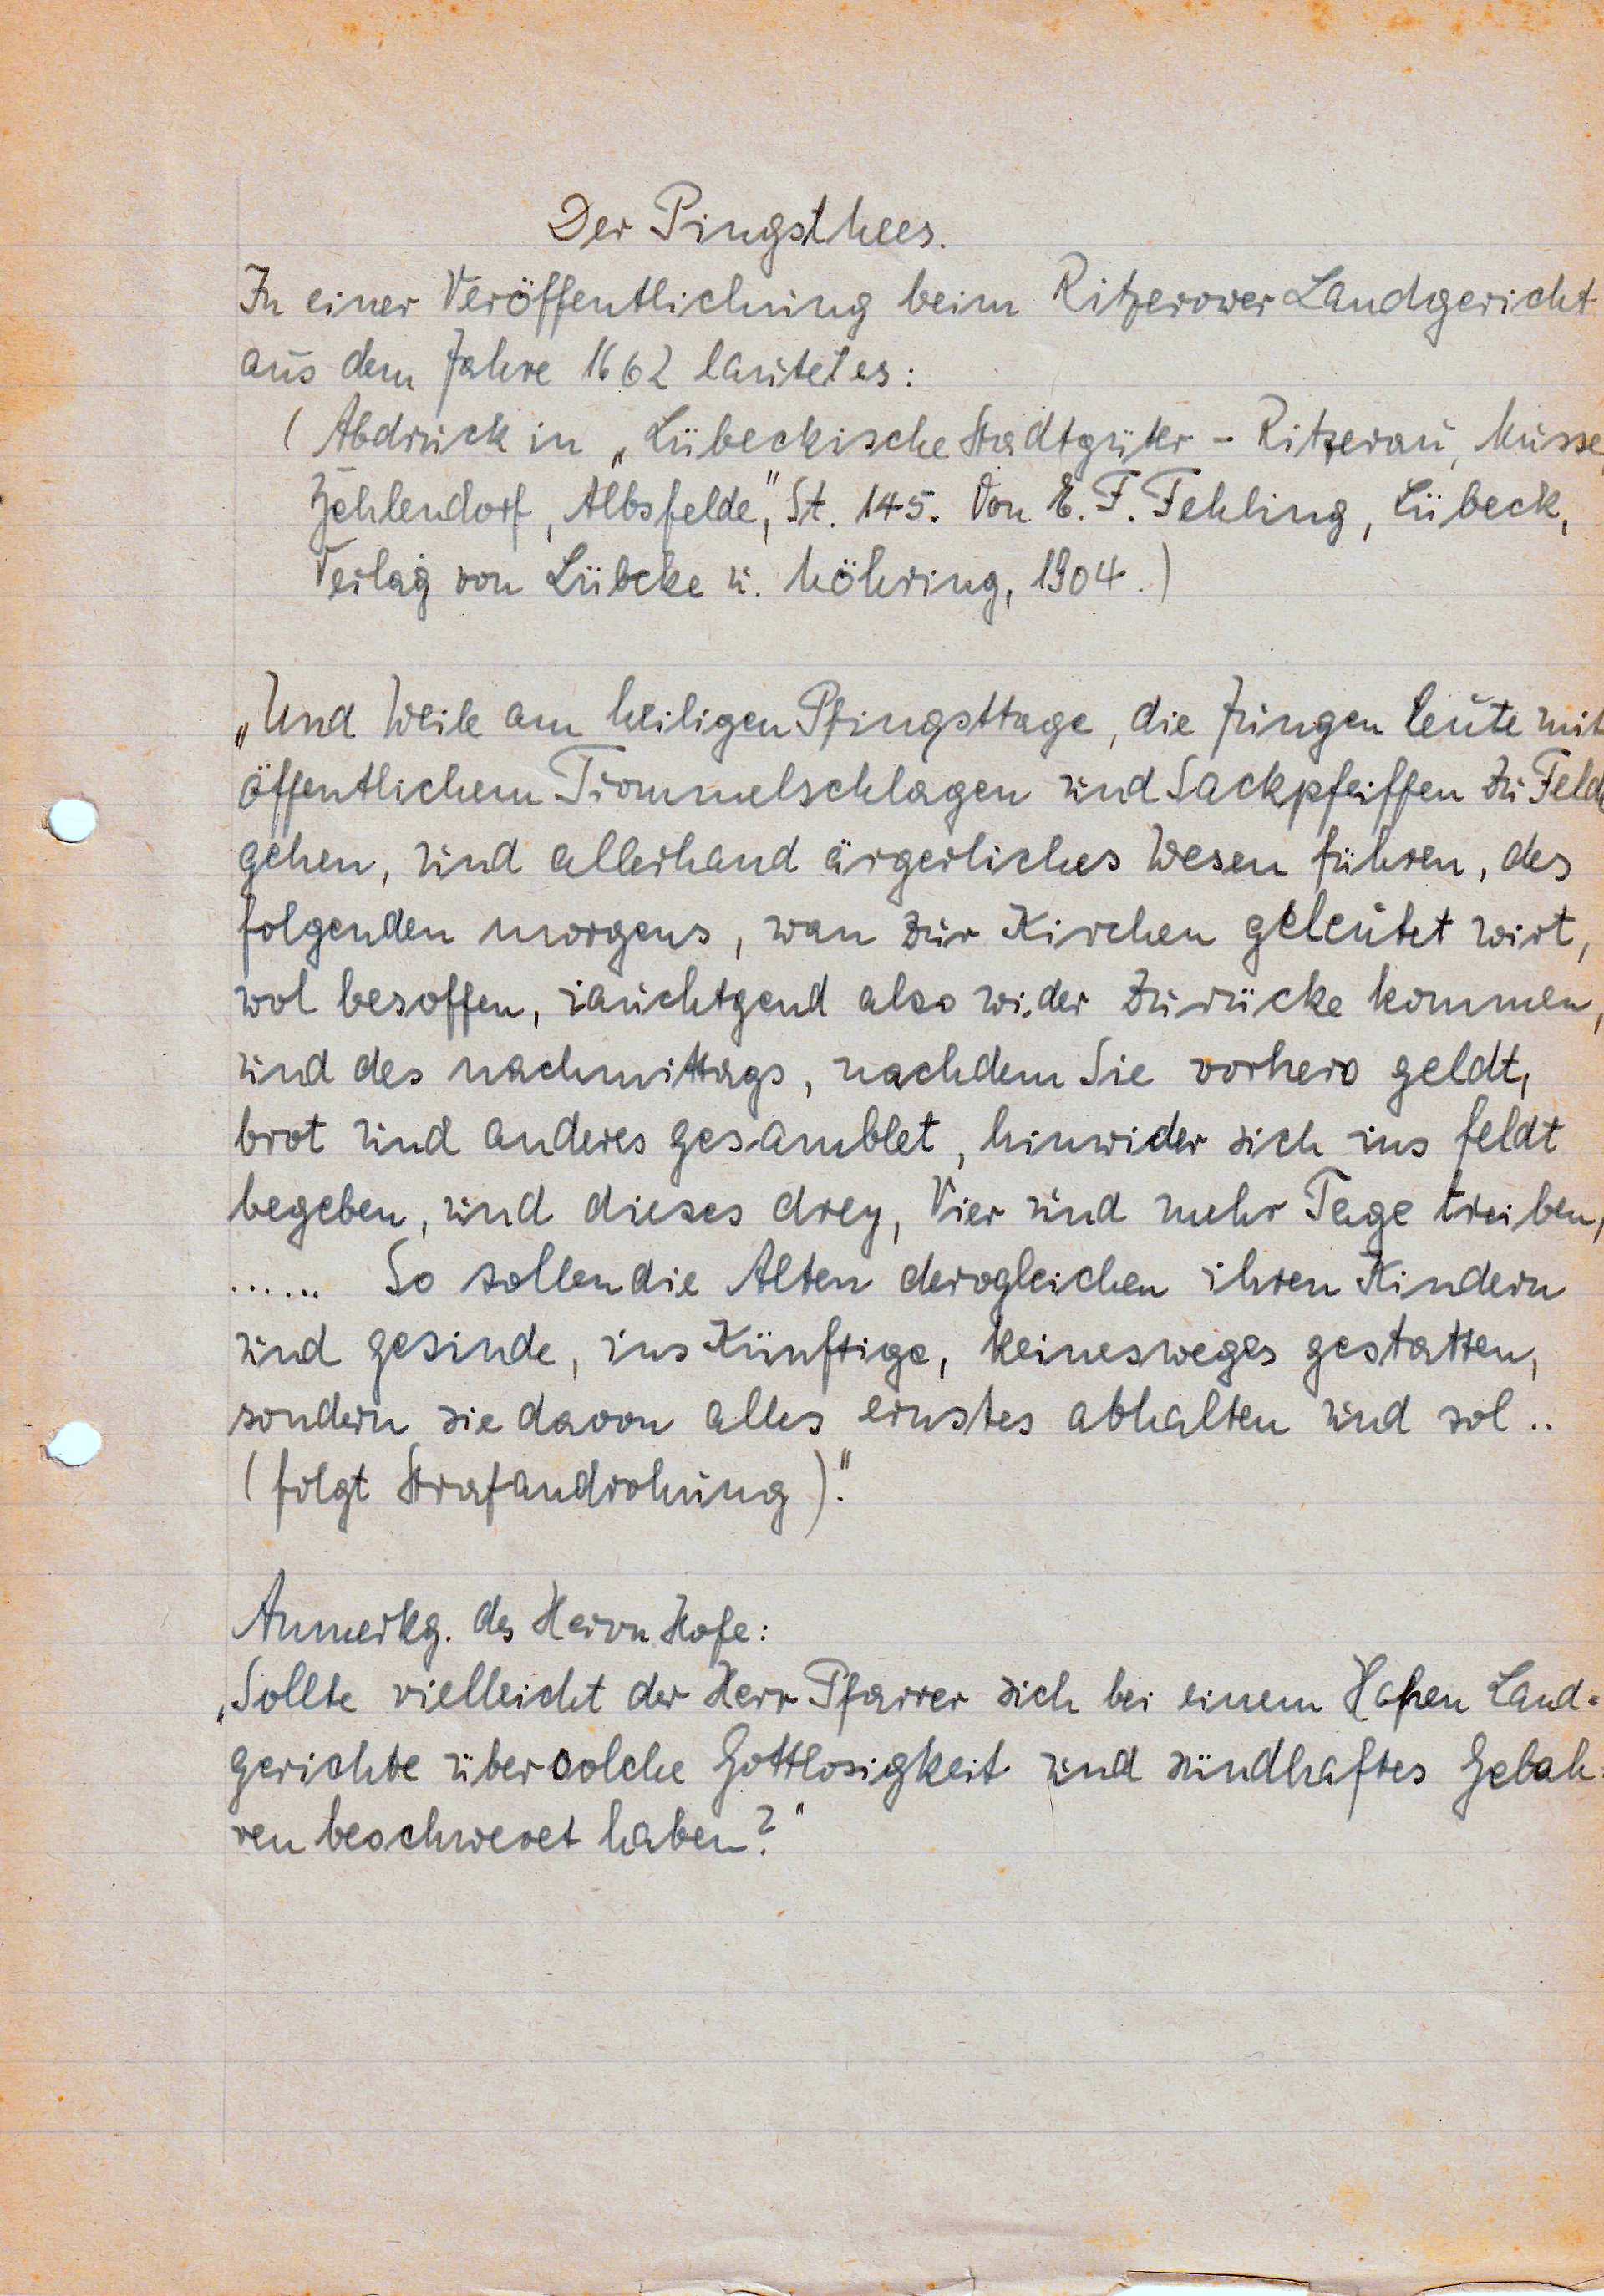 Der Pingsthees.
In einer Veröffentlichung beim Ritzerower Landgericht
aus dem Jahre 1662 lautet es:
(Abdruck in „Lübeckische Stadtgüter - Ritzerau, Nusse,
Zehlendorf, Albsfelde", St. 145. Von E. F. Fehling, Lübeck,
Verlag von Lübcke u. Nöhring, 1904.)
„Und Weile am heiligen Pfingsttage, die Jungen Leute mit
öffentlichem Trommelschlagen und Sackpfeiffen zu Felde
gehen, und allerhand ärgerliches Wesen führen, des
folgenden morgens, wan zur Kirchen geleutet wirt,
wol besoffen, iauchtgend also wider zurücke kommen,
und des nachmittags, nachdem Sie vorhero geldt,
brot und anderes gesamblet, hinwider sich ins feldt
begeben, und dieses drey, Vier und mehr Tage treiben,
...... So sollen die Alten derogleichen ihren Kindern
und gesinde, ins Künftige, keinesweges gestatten,
sondern sie davon alles ernstes abhalten und sol ..
(folgt Strafandrohung)."
Anmerkg. des Herrn Hofe:
„Sollte vielleicht der Herr Pfarrer sich bei einem Hohen Land=
gerichte über solche Gottlosigkeit und sündhaftes Gebah=
ren beschweret haben?"